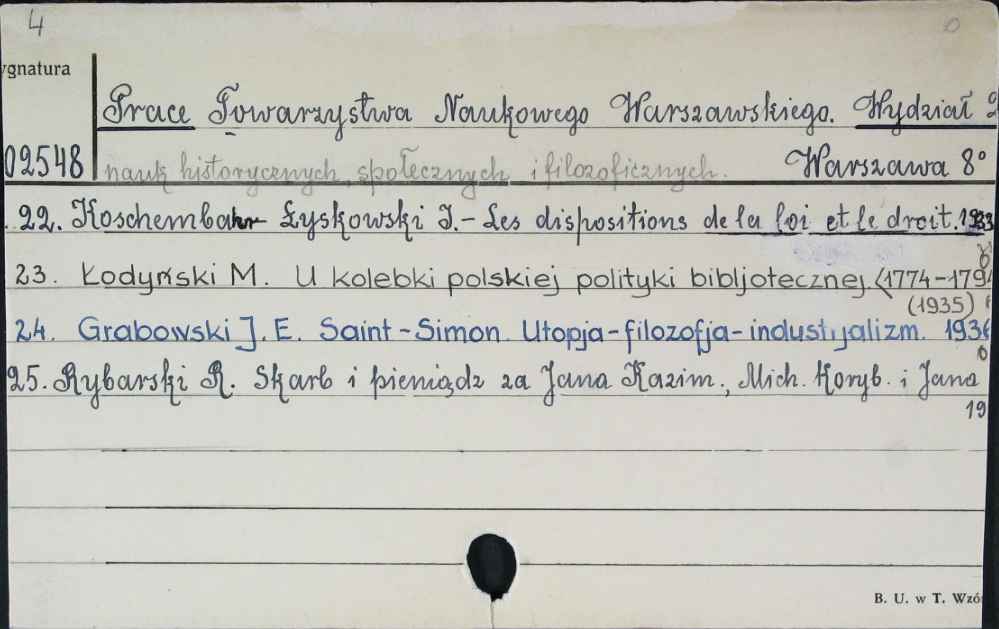 4 0
ygnatura
Prace Towarzystwa Naukowego Warszawskiego. Wydział 2
02548 nauk historycznych, społecznych i filozoficznych. Warszawa 8°
22. Koschembahr Łyskowski J. - Les dispositions de la loi et le droit. 1933
23. Łodyński M. U kolebki polskiej polityki bibljotecznej. (1774-179
(1935)
24. Grabowski J. E. Saint-Simon. Utopja-filozofja-industrjalizm. 1936
25. Rybarski R. Skarb i pieniądz za Jana Kazim., Mich. Koryb. i Jana
19
B. U. w T. Wzó